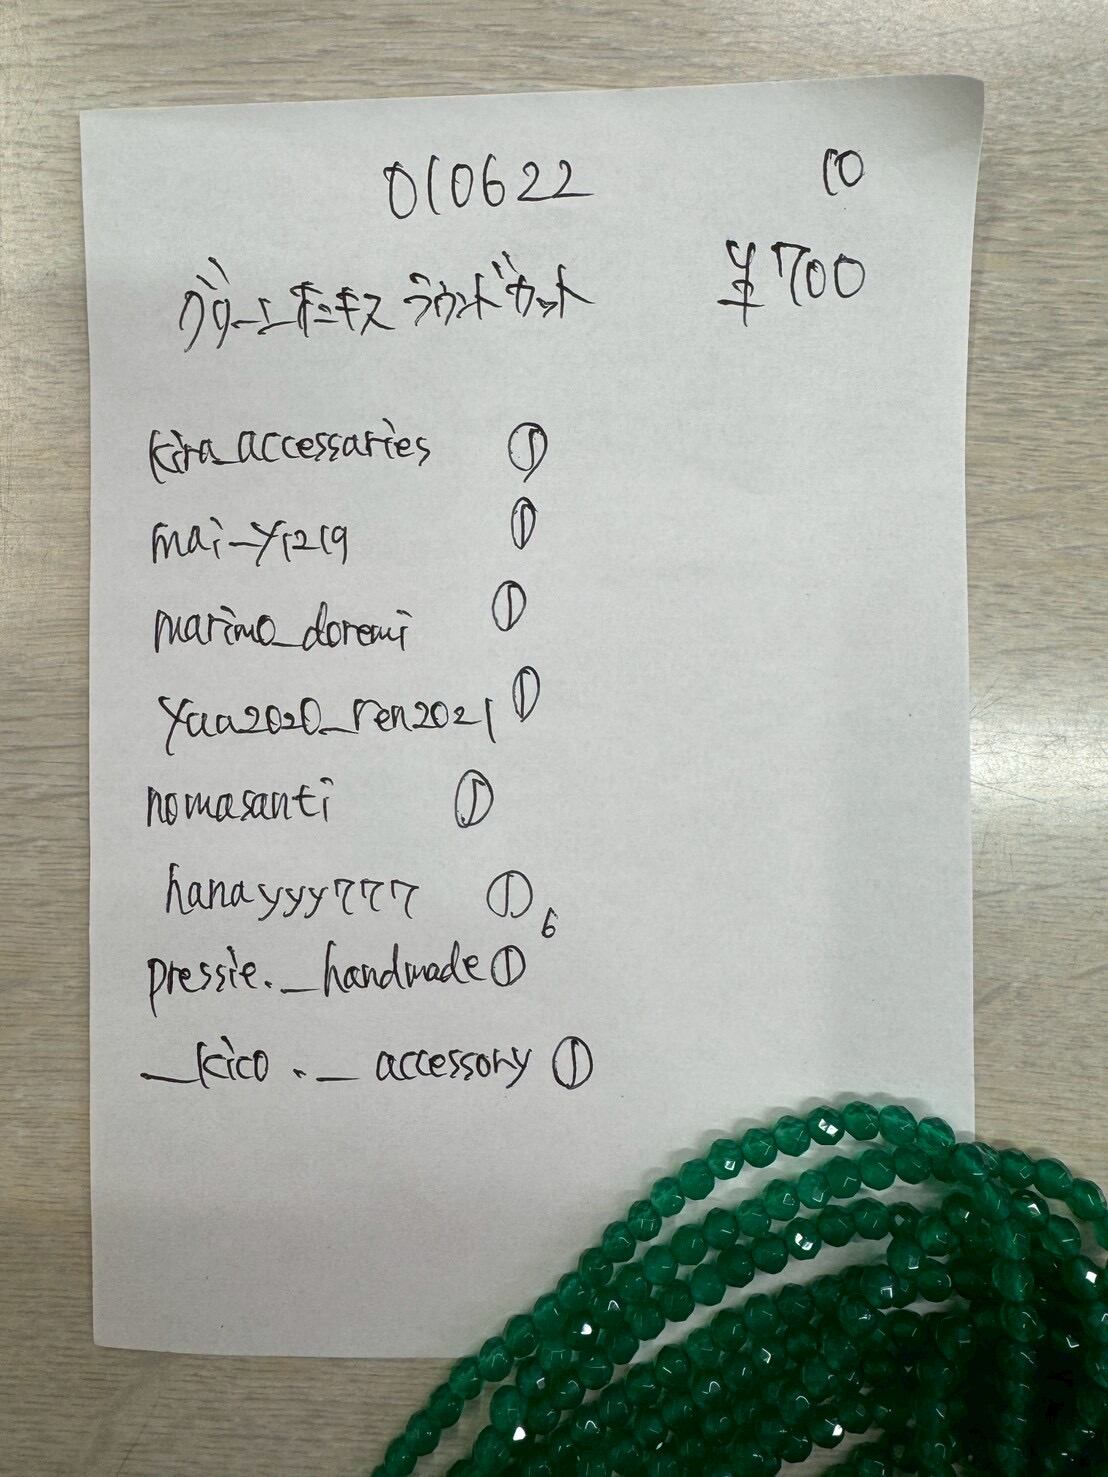 010622 10
グリーンオニキス ラウンドカット ¥700
kira_accessaries ①
mai_y1219 ①
marimo_doremi ①
yaa2020_ren2021 ①
nomasanti ①
hanayyy777 ①
6
pressie._handmade ①
_kico._accessory ①